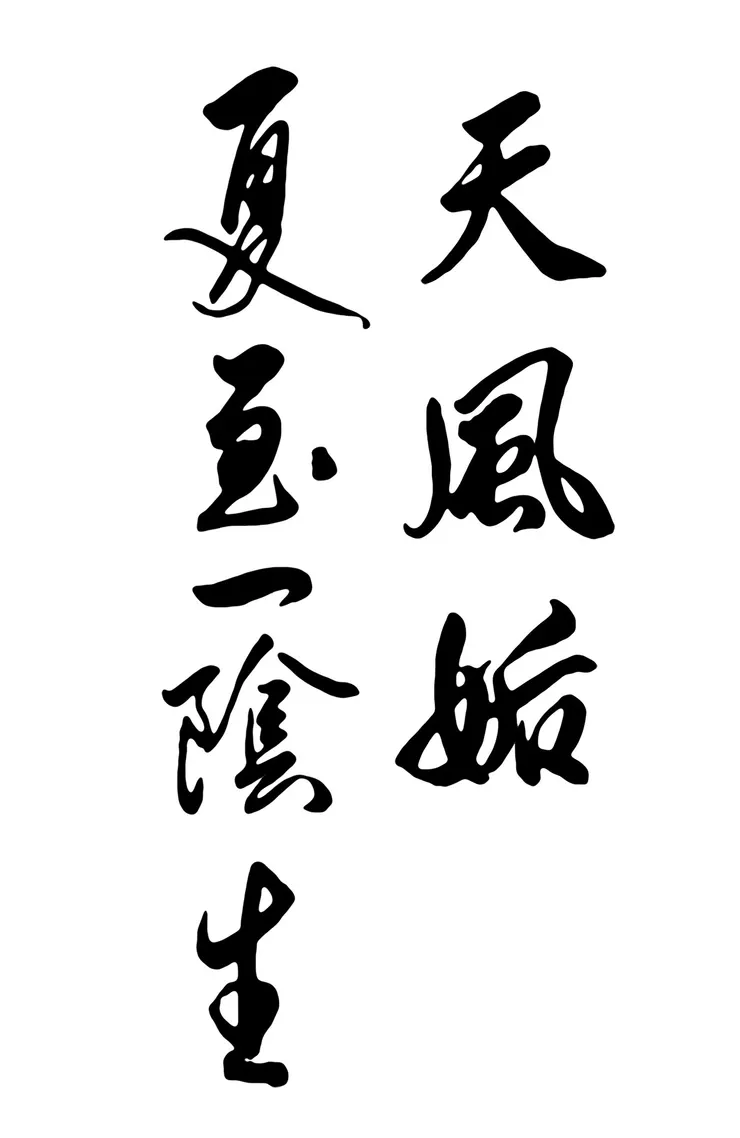 天風姤
夏至一陰生